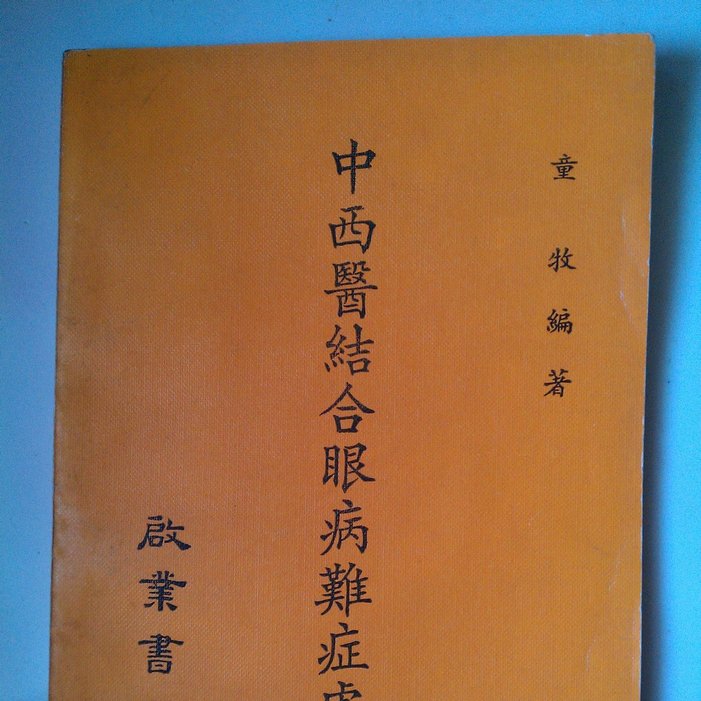 童牧編著
中西醫結合眼病難症
啟業書